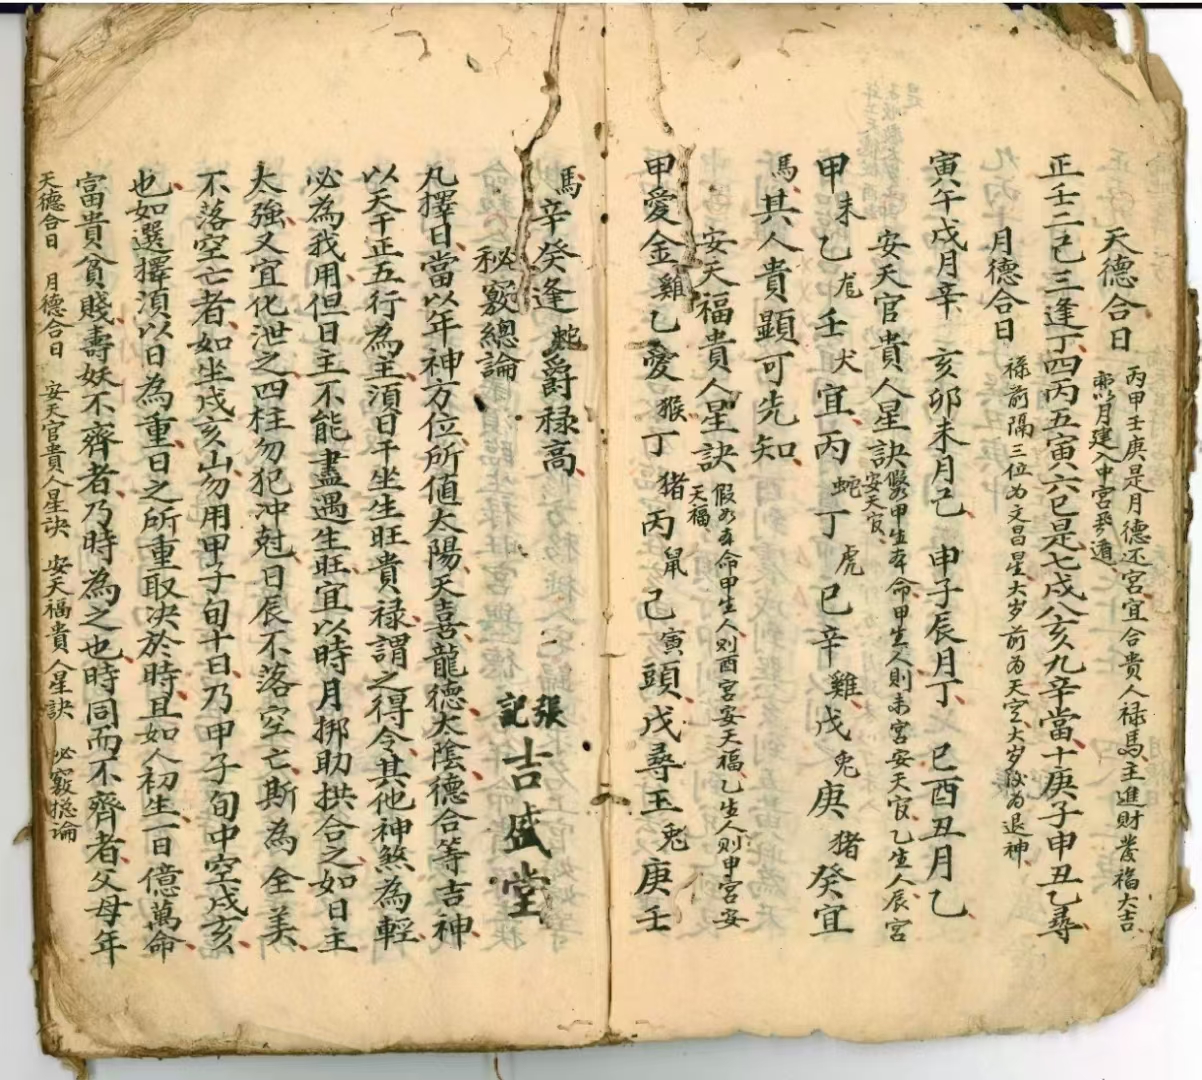 天德合日
丙甲壬庚是月德还宮宜合貴人祿馬主進財發福大吉
月建入中宮遁
正壬二己三逢丁四丙五寅六巳是七戊八亥九辛當十庚子申丑乙尋
月德合日
祿前隔三位为文昌星大岁前为天空大岁後为退神
寅午戌月辛 亥卯未月己 申子辰月丁 巳酉丑月乙
安天官貴人星訣
假如甲生本命甲生人則未宮安天官乙生人辰宮
安天官
甲未乙龙壬犬宜丙蛇丁虎己辛雞戊兔庚猪癸宜
馬其人貴顯可先知
安天福貴人星訣
假如本命甲生人則酉宮安天福乙生人則申宮安
天福
甲愛金雞乙愛猴丁猪丙鼠己寅頭戊尋玉兔庚壬
馬辛癸逢蛇爵祿高
張記吉盛堂
秘竅總論
凡擇日當以年神方位所值太陽天喜龍德太陰德合等吉神
以天干正五行為主須日干坐生旺貴祿謂之得令其他神煞為輕
必為我用但日主不能盡遇生旺宜以時月挪助拱合之如日主
太強又宜化泄之四柱勿犯冲尅日辰不落空亡斯為全美
不落空亡者如坐戌亥山勿用甲子旬十日乃甲子旬中空戌亥
也如選擇須以日為重日之所重取决於時且如人初生一日億萬命
富貴貧賤壽妖不齊者乃時為之也時同而不齊者父母年
天德合日 月德合日 安天官貴人星訣 安天福貴人星訣 必竅捴论